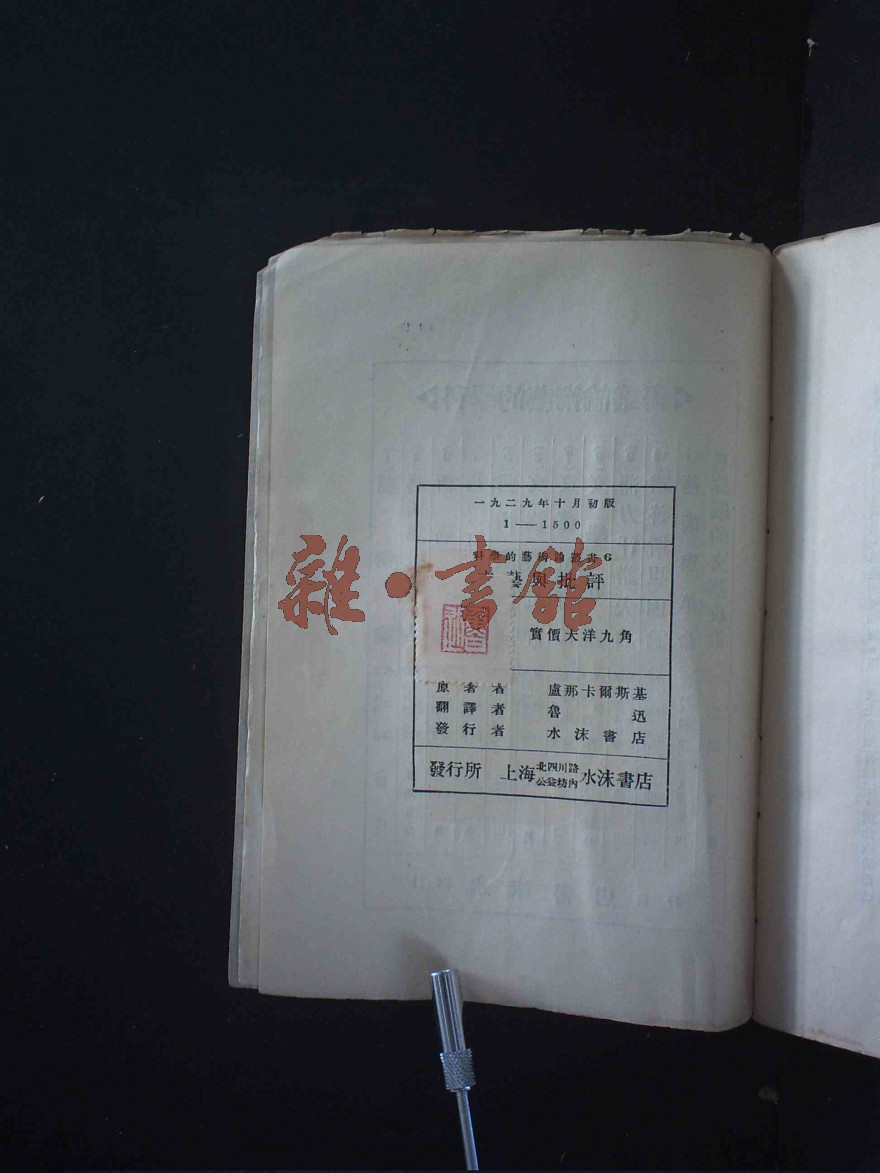 一九二九年十月初版
1——1500
科學的藝術論叢書6
藝與批評
實價大洋九角
原著者 盧那卡爾斯基
翻譯者 魯迅
發行者 水沫書店
發行所 上海北四川路公益坊內水沫書店
雜·書館